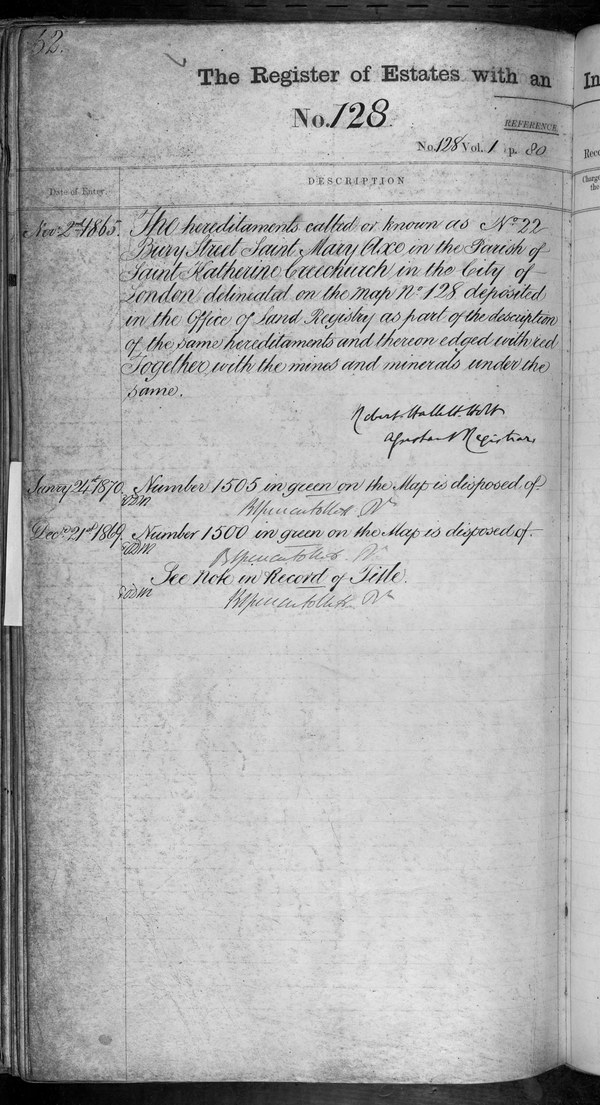 62.
The Register of Estates with an
In
No. 128.
REFERENCE
No. 128 Vol. 1 p. 80
Date of Entry.
DESCRIPTION
Nov. 2nd 1865. The hereditaments called or known as No. 22
Bury Street Saint Mary Axe in the Parish of
Saint Katherine Creechurch in the City of
London deliniated on the Map No. 128 deposited
in the Office of Land Registry as part of the description
of the same hereditaments and thereon edged with red
Together with the mines and minerals under the
same.
Robert Hallett Holt
Assistant Registrar
Janry 24th 1870. Number 1505 in green on the Map is disposed of
Decr. 21st 1869. Number 1500 in green on the Map is disposed of
See Note in Record of Title.